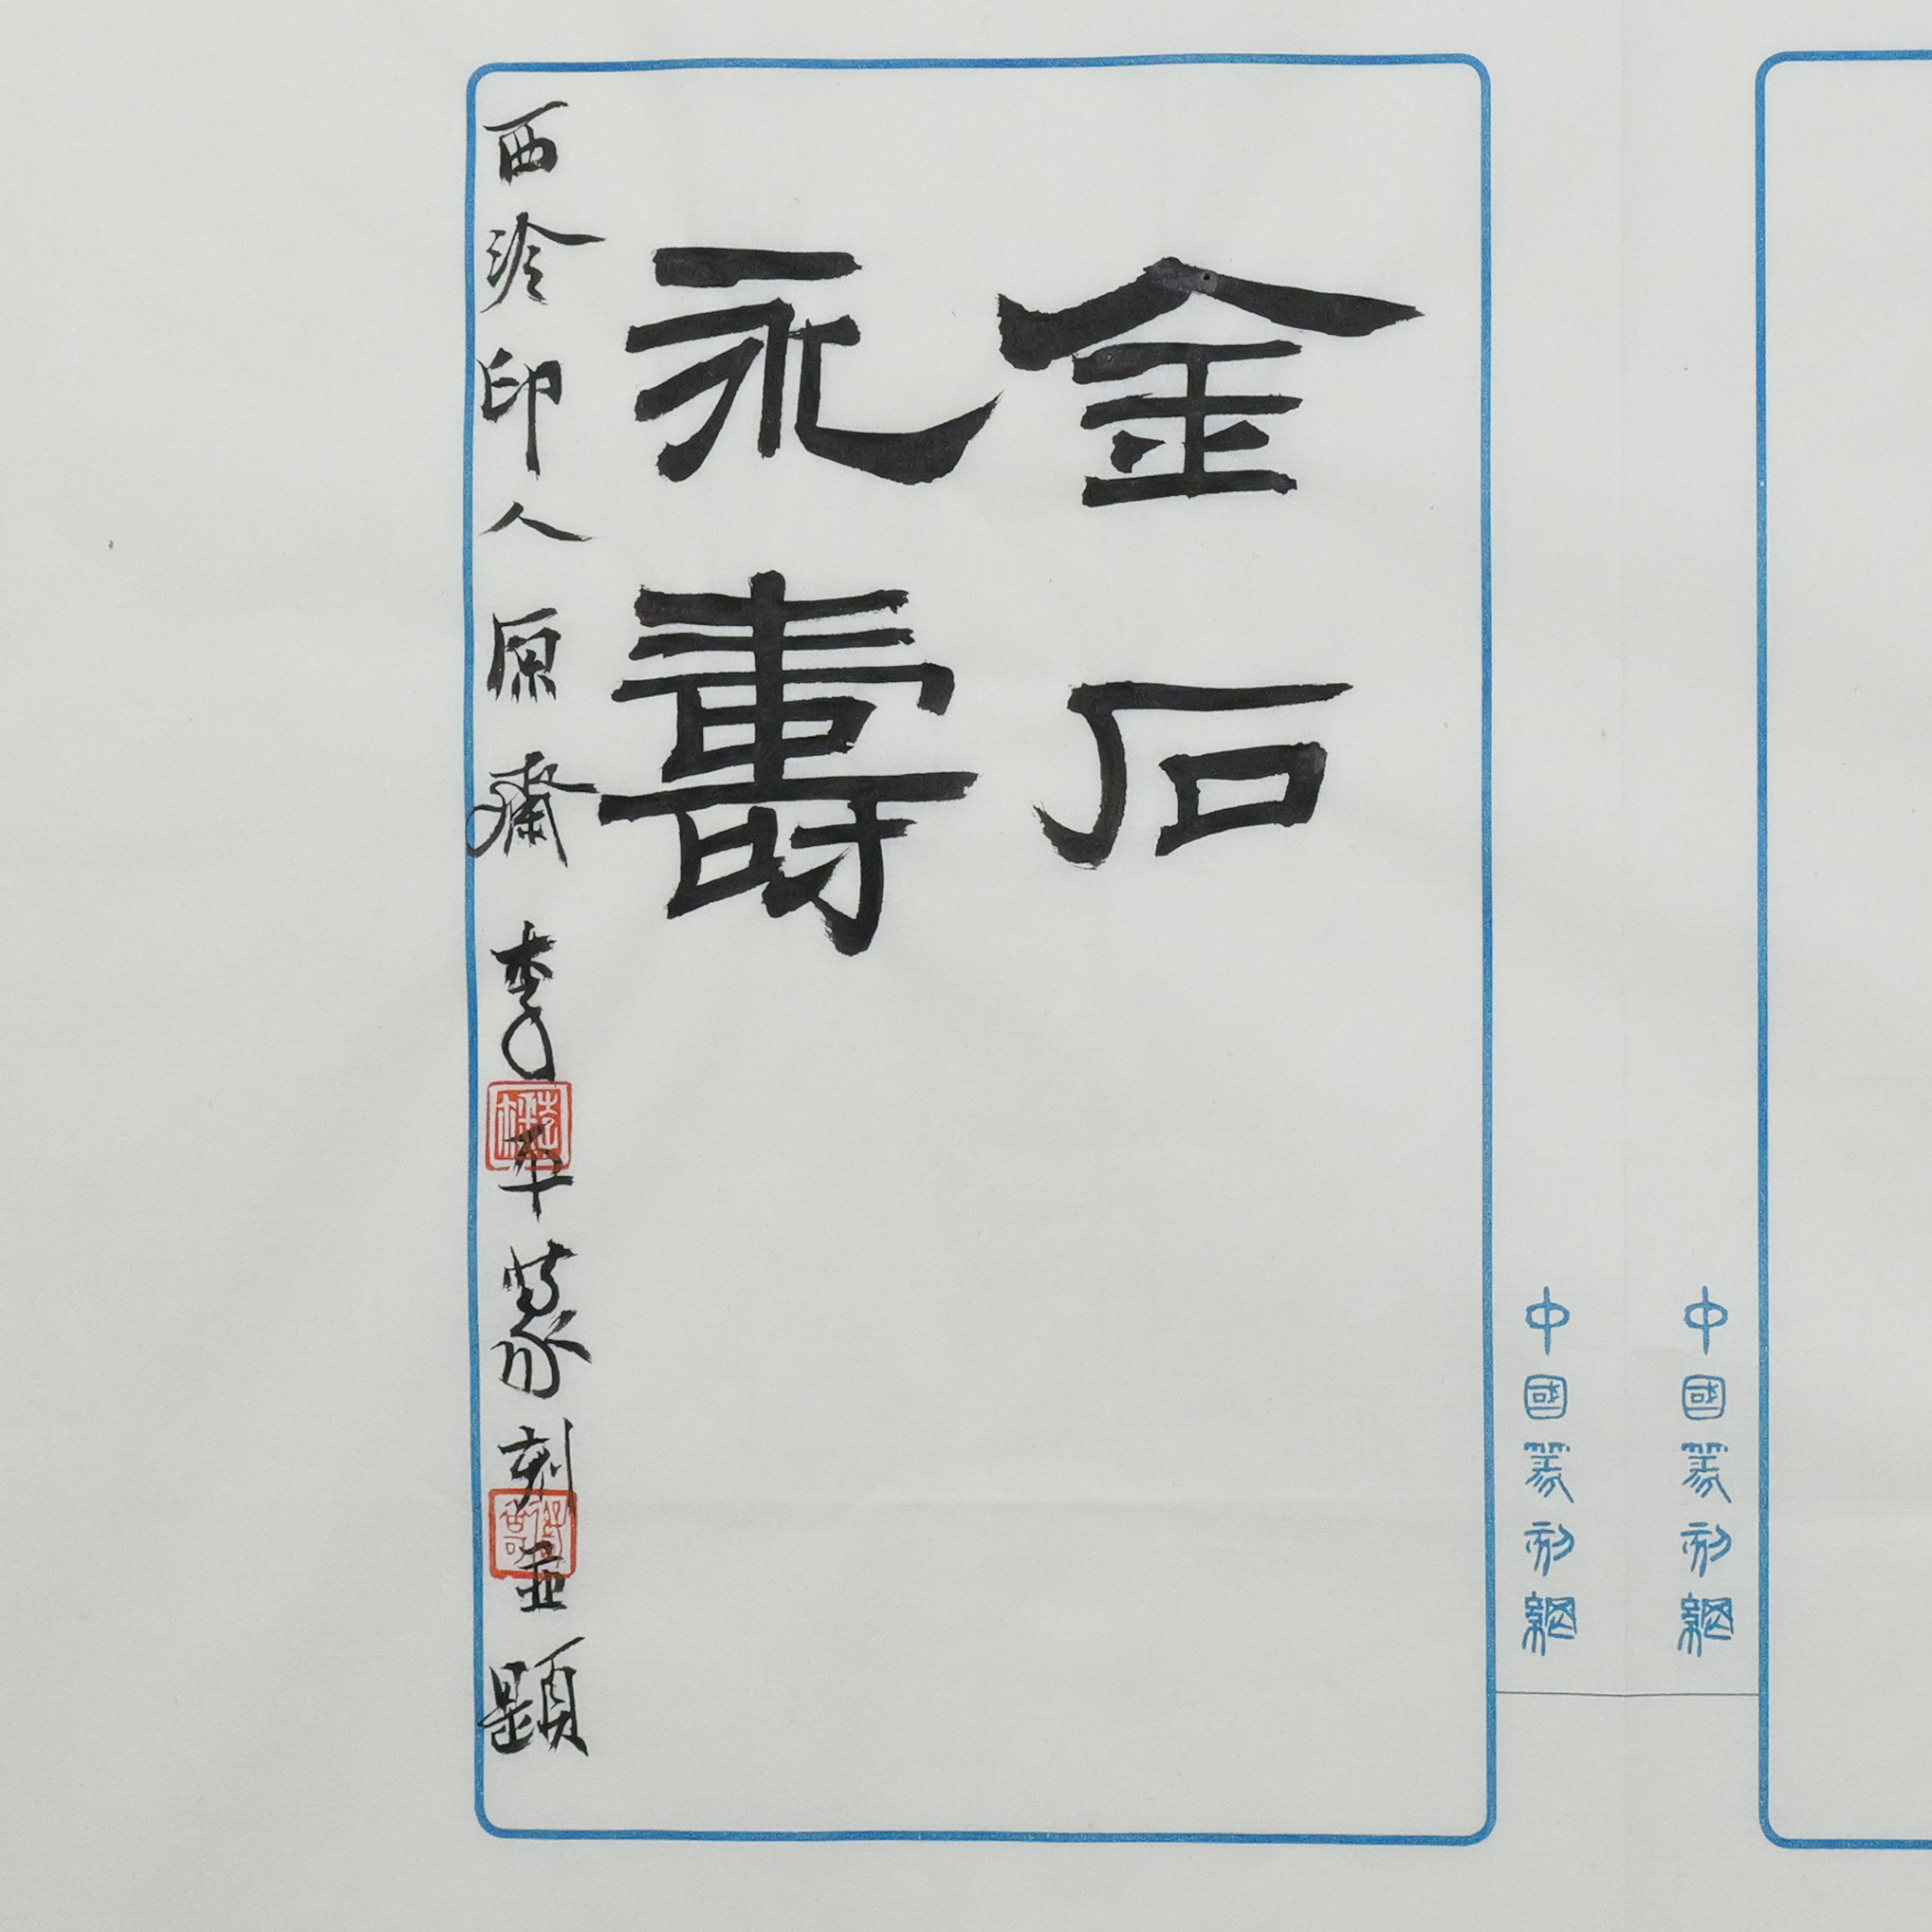 金石
永壽
西泠印人原齋李平篆刻並題
中國篆刻網
中國篆刻網